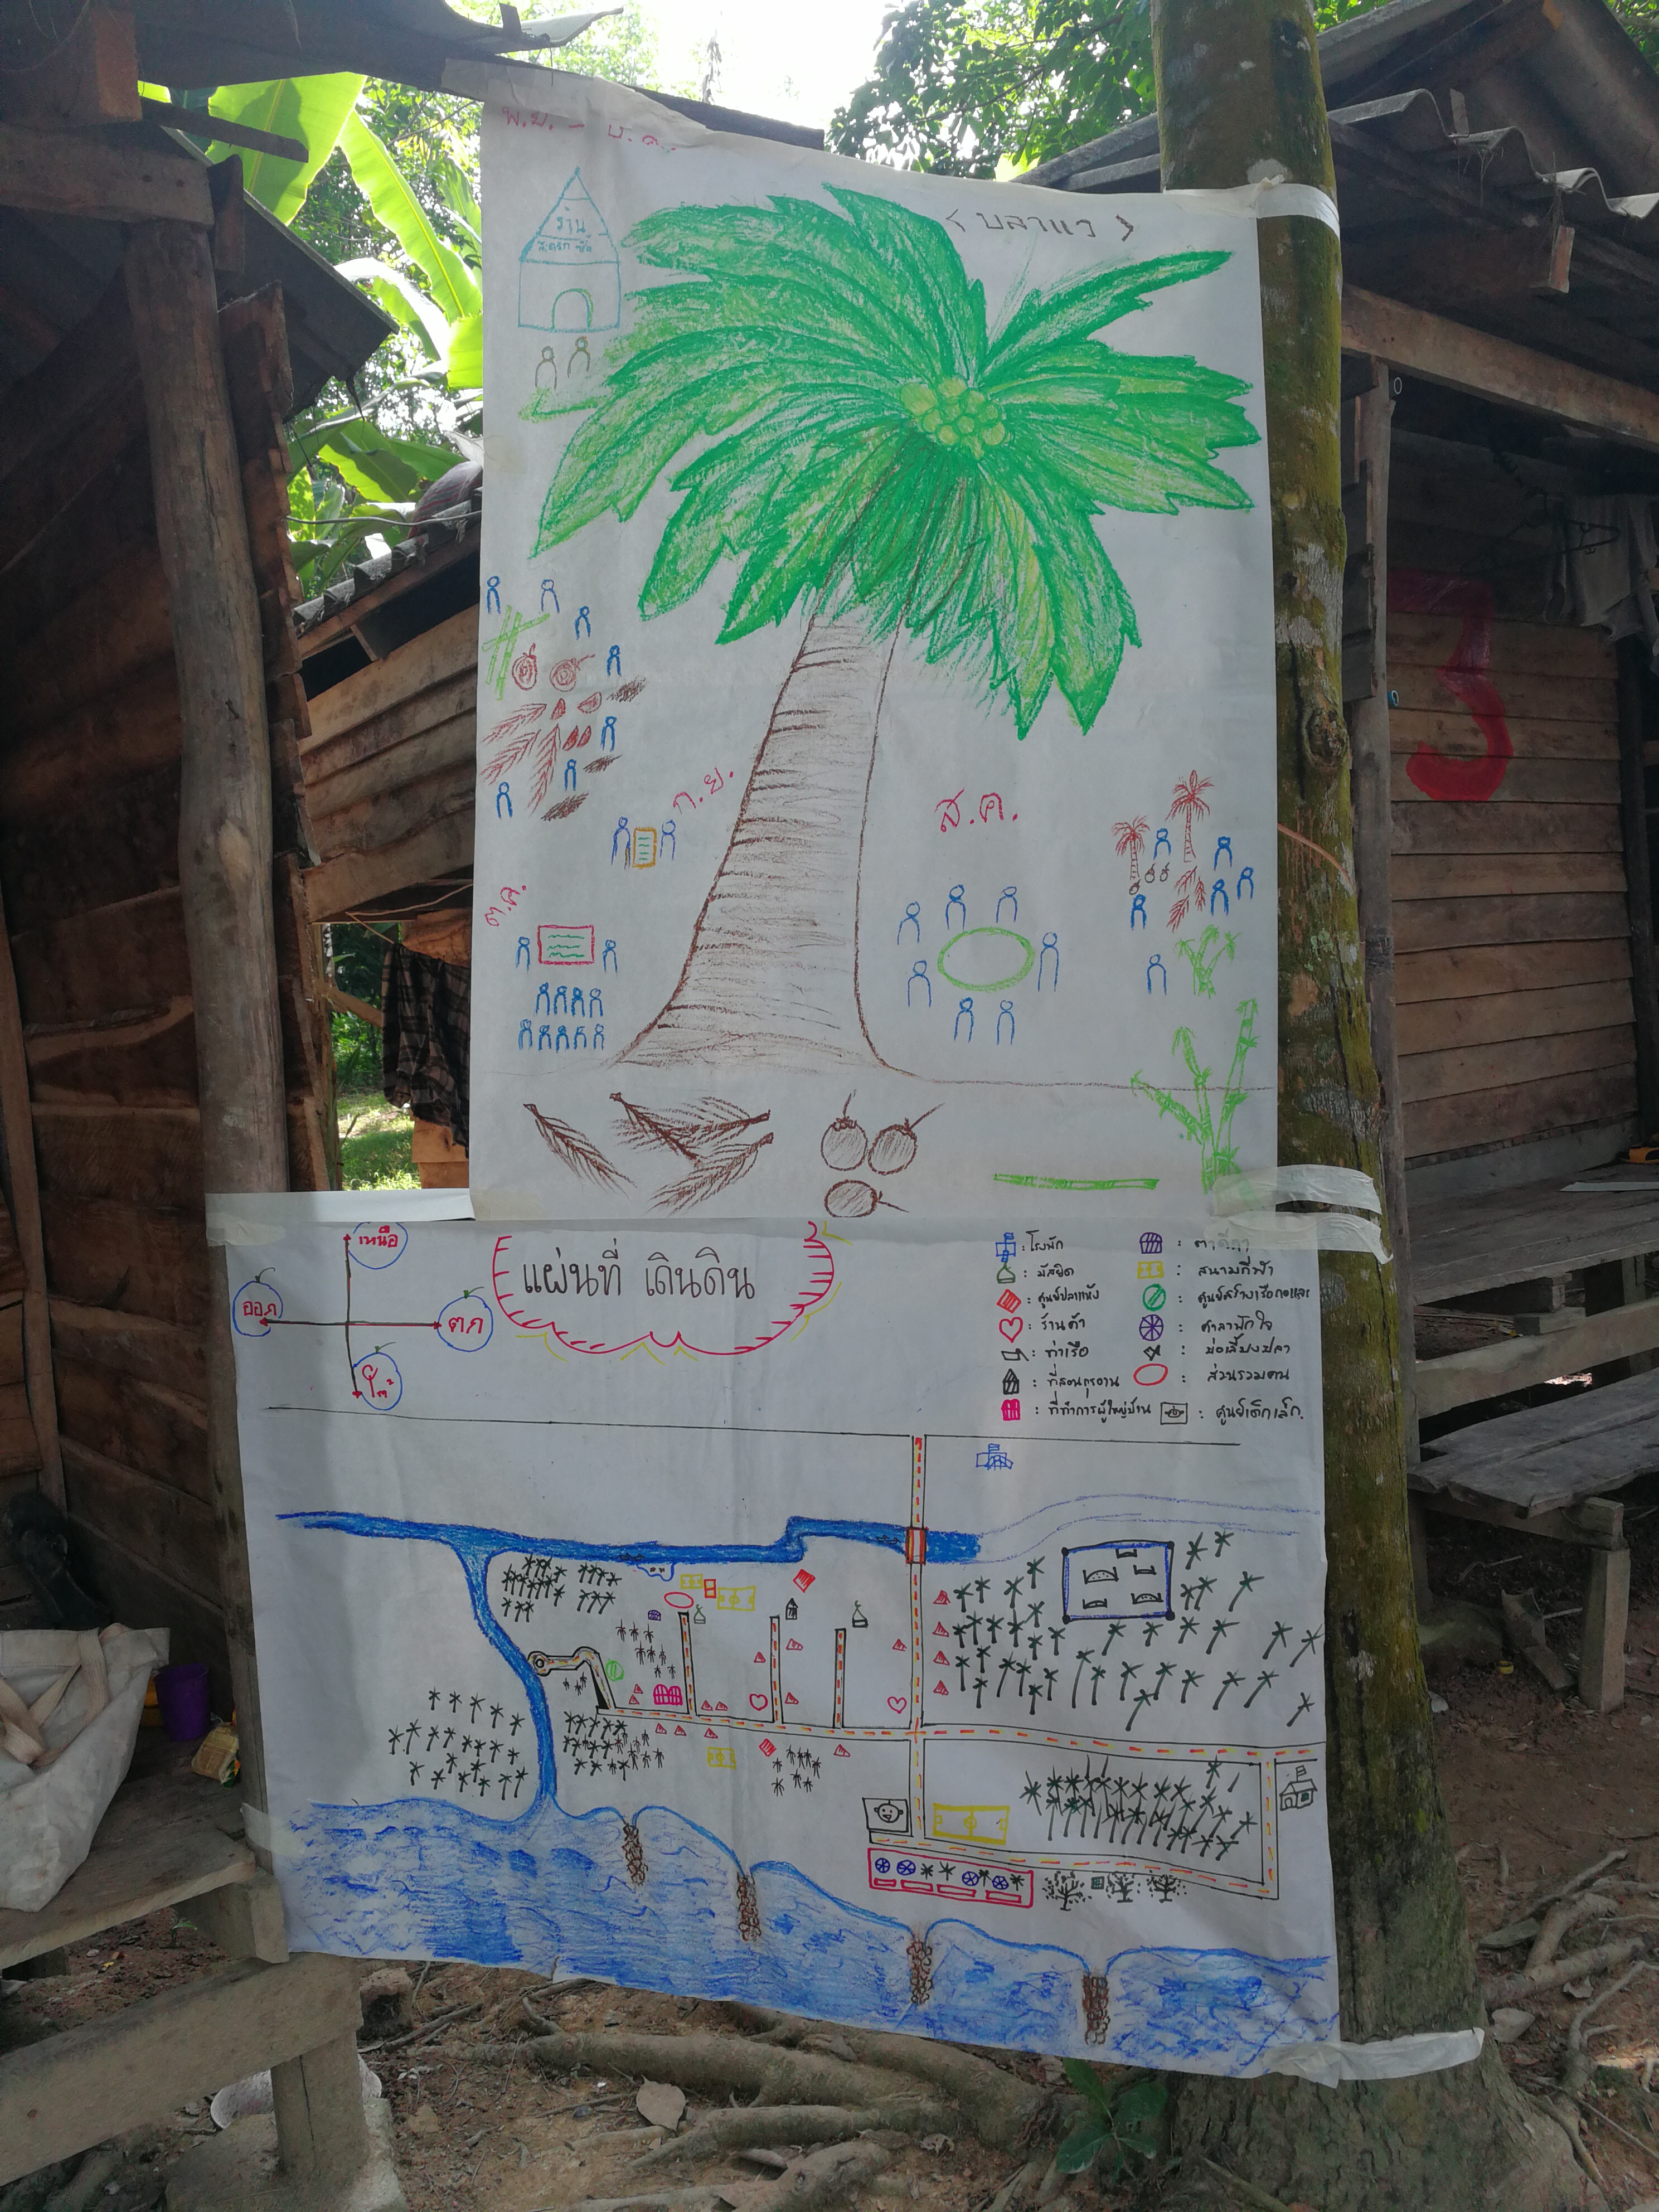 พ.ย. - ธ.ค.
< ปลาแว >
ร้าน
ก.ย.
ส.ค.
ต.ค.
เหนือ
ออก
ตก
ใต้
แผ่นที่ เดินดิน
: โรงพัก
: มัสยิด
: ศูนย์ปลาแห้ง
: ร้านค้า
: ท่าเรือ
: ที่สอนกุรอาน
: ที่ทำการผู้ใหญ่บ้าน
: ตาดีกา
: สนามกีฬา
: ศูนย์สร้างเรือกอและ
: ศาลาพักใจ
: บ่อเลี้ยงปลา
: ส่วนรวมคน
: ศูนย์เด็กเล็ก.
3